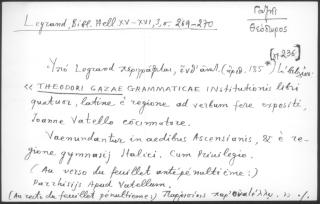 Legrand, Bibl. Hell XV-XVI, 3, σ. 269-270
Γαζῆς
Θεόδωρος
[σ. 236]
Ὑπὸ Legrand περιγράφεται, ἔνθ' ἀνωτ. (ἀριθ. 135*)
« THEODORI GAZAE GRAMMATICAE INSTITUTIONIS libri
quatuor, latine è regione ad verbum fere expositi,
Ioanne Vatello concinnatore.
Vaenundantur in aedibus Ascensianis, & è re-
gione gymnasij Italici. Cum Privilegio.
(Au verso du feuillet antépénultième:)
Parrhisijs Apud Vatellum.
(Au recto du feuillet pénultième:) Παρρησίοις παρ'